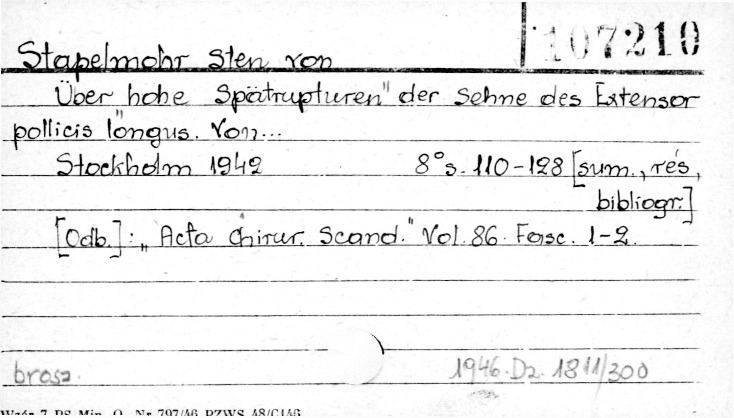 107210
Stapelmohr Sten von
Über hohe "Spätrupturen" der Sehne des Extensor
pollicis longus. Von...
Stockholm 1942 8° s. 110-128 [sum., rés,
bibliogr.]
[Odb.]: „Acta chirur. Scand." Vol. 86. Fasc. 1-2.
brosz. 1946. Dz. 1811/300
Wzór 7 PS Min. O. Nr 797/46 PZWS 48/C146